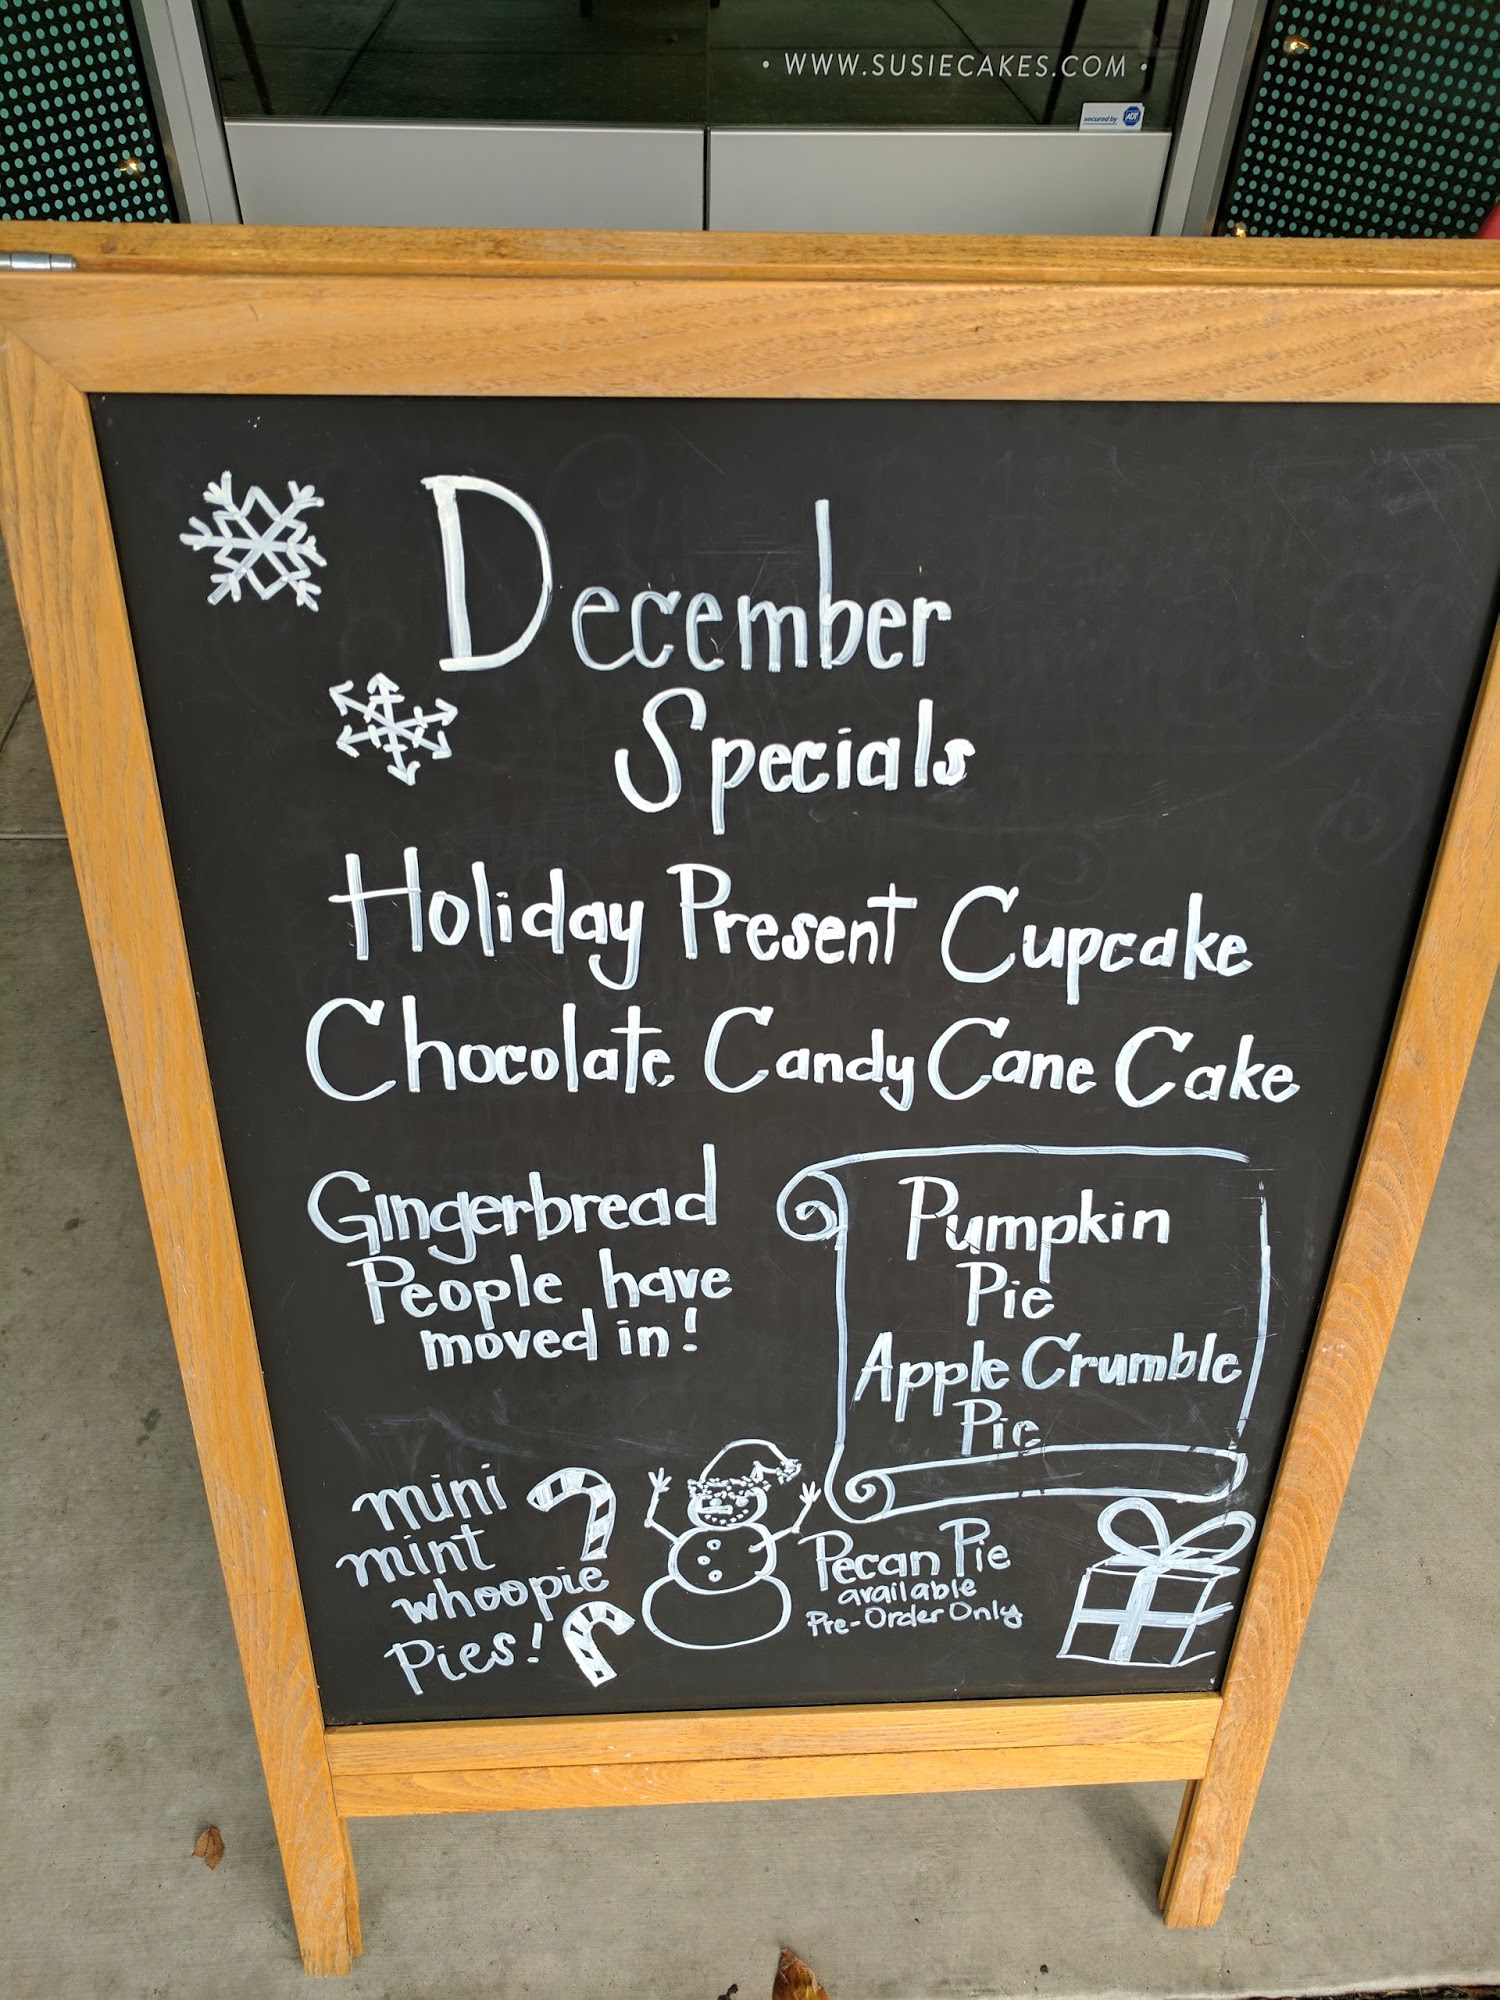 • WWW.SUSIECAKES.COM •
secured by ADT
December
Specials
Holiday Present Cupcake
Chocolate Candy Cane Cake
Gingerbread
People have
moved in!
Pumpkin
Pie
Apple Crumble
Pie
mini
mint
whoopie
Pies!
Pecan Pie
available
Pre-Order Only